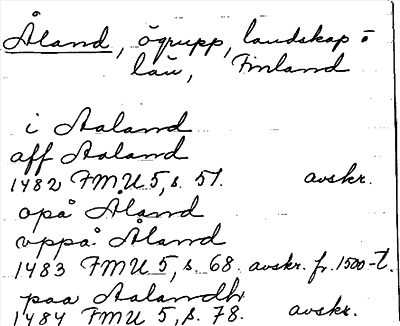 Åland, ögrupp, landskap =
län, Finland
i Aaland
aff Aaland
1482 FMU 5, s. 51. avskr.
opå Åland
vppå Åland
1483 FMU 5, s. 68. avskr. fr. 1500-t.
paa Aalandh
1484 FMU 5, s. 78. avskr.